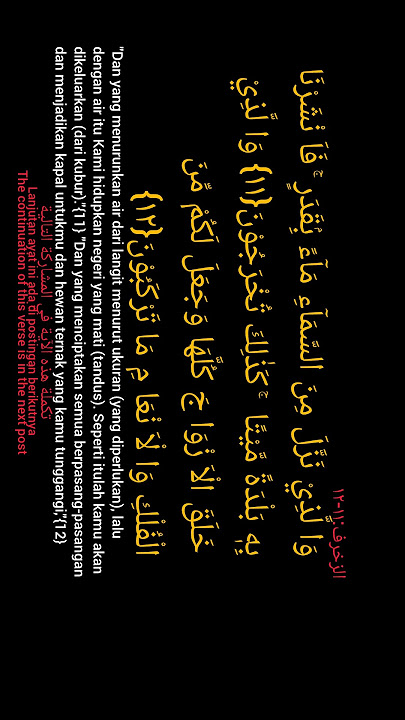 الزخرف:١١-١٢
وَا لَّذِيْ نَزَّلَ مِنَ السَّمَآءِ مَآءً بِۢقَدَرٍ ۚ فَاَ نْشَرْنَا
بِهٖ بَلْدَةً مَّيْتًا ۚ كَذٰلِكَ تُخْرَجُوْنَ{١١} وَا لَّذِيْ
خَلَقَ الْاَ زْوَا جَ كُلَّهَا وَجَعَلَ لَكُمْ مِّنَ
الْفُلْكِ وَا لْاَ نْعَا مِ مَا تَرْكَبُوْنَ{١٢}
"Dan yang menurunkan air dari langit menurut ukuran (yang diperlukan), lalu
dengan air itu Kami hidupkan negeri yang mati (tandus). Seperti itulah kamu akan
dikeluarkan (dari kubur).",{11} "Dan yang menciptakan semua berpasang-pasangan
dan menjadikan kapal untukmu dan hewan ternak yang kamu tunggangi,"{12}
تكملة هذه الآية في المشاركة التالية
Lanjutan ayat ini ada di postingan berikutnya
The continuation of this verse is in the next post